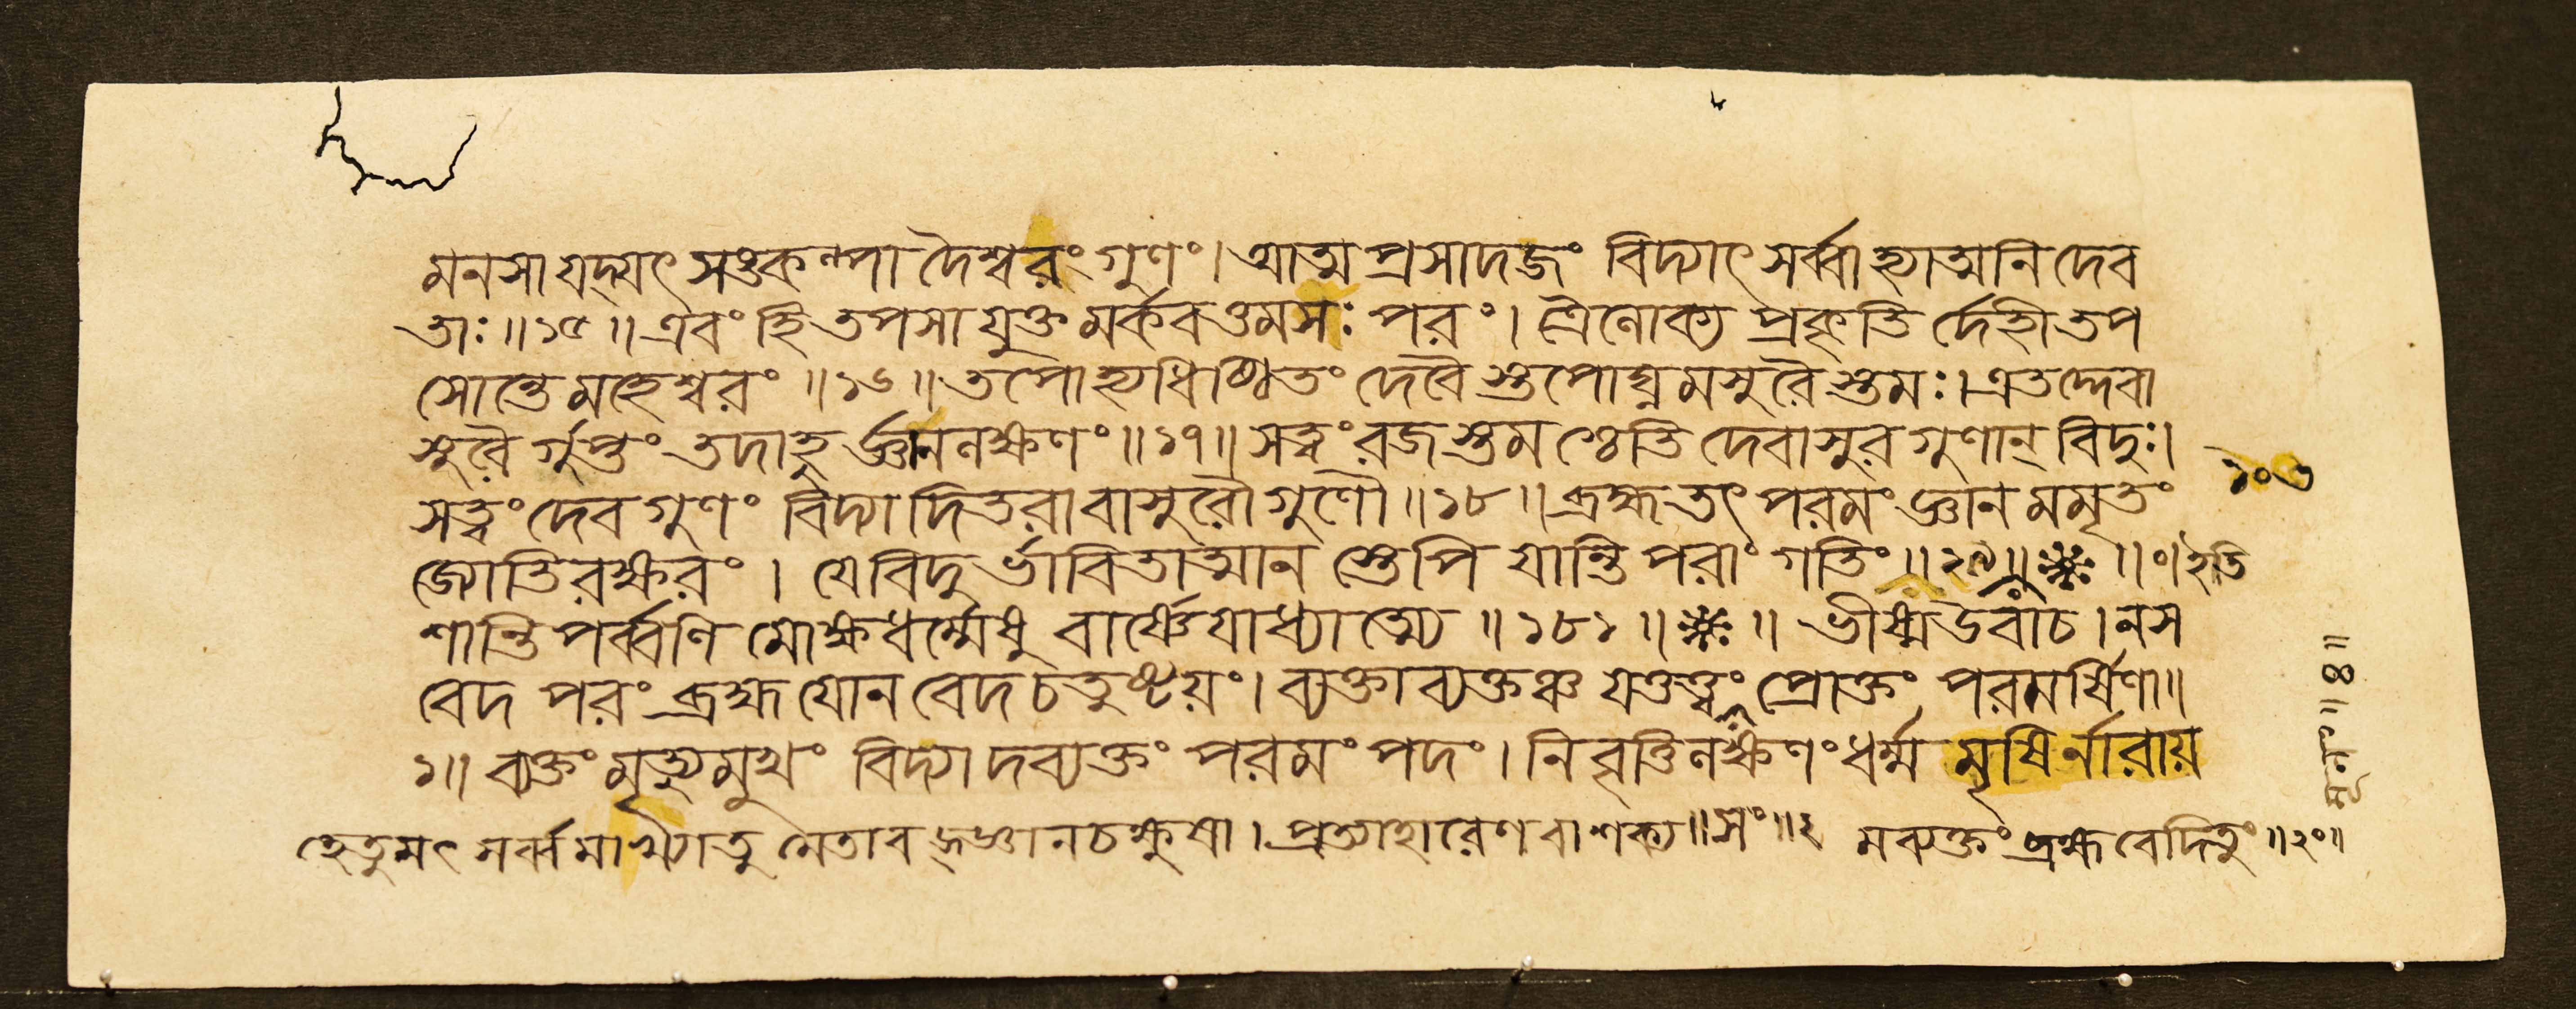 মনসা যদ্যৎ সঙ্কল্পাদৈশ্বরং গুণং। আত্মপ্রসাদজং বিদ্যাৎ সর্ব্বাহ্যাত্মনি দেব
তাঃ॥১৫॥ এবং হি তপসা যুক্তমর্কবত্তমসঃ পরং। ত্রৈলোক্য প্রকৃতির্দেহী তপ
সোন্তে মহেশ্বরং॥১৬॥ তপোহ্যধিষ্ঠিতং দেবৈস্তপোঘ্নমসুরৈস্তমঃ। এতদ্দেবা
সুরৈর্গুপ্তং তদাহুর্জ্ঞানলক্ষণং॥১৭॥ সত্ত্বং রজস্তমশ্চেতি দেবাসুরগুণান্ বিদুঃ।
সত্ত্বং দেবগুণং বিদ্যাদিতরাবাসুরৌ গুণৌ॥১৮॥ ব্রহ্ম তৎ পরমং জ্ঞানমমৃতং
জ্যোতিরক্ষরং। যে বিদুর্ভাবিতাত্মানস্তেপি যান্তি পরাং গতিং॥১৯॥ ॥০॥ইতি
শান্তিপর্ব্বণি মোক্ষধর্ম্মেষু বার্ষ্ণেয়াধ্যাত্ম্যে॥১৮১॥ ॥ ভীষ্ম উবাচ। ন স
বেদ পরং ব্রহ্ম যো ন বেদ চতুষ্টয়ং। ব্যক্তাব্যক্তঞ্চ যত্তত্ত্বং প্রোক্তং পরমর্ষিণা॥
১॥ ব্যক্তং মৃত্যুমুখং বিদ্যাদব্যক্তং পরমং পদং। নিবৃত্তিলক্ষণং ধর্ম্মমৃষির্নারায়
হেতুমৎ সর্ব্বমাখ্যাতুমেতাবদ্জ্ঞানচক্ষুষা। প্রত্যাহারেণ বা শক্য॥সং॥২ মব্যক্তং ব্রহ্ম বেদিতুং॥২০॥